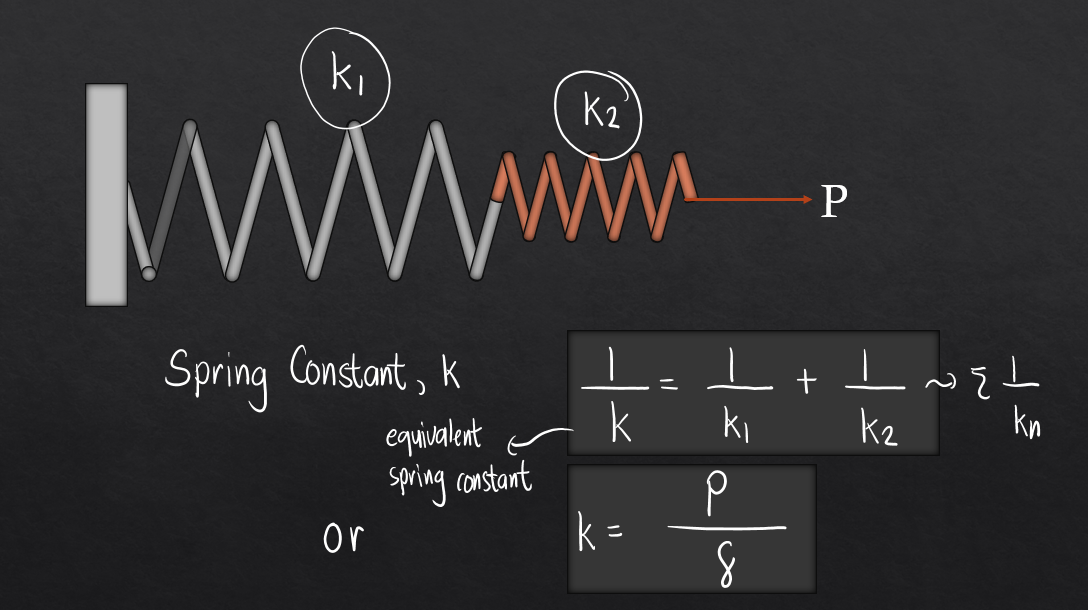 k1
k2
P
Spring Constant, k
1/k = 1/k1 + 1/k2 ~> Σ 1/kn
equivalent
spring constant
or
k = P/δ